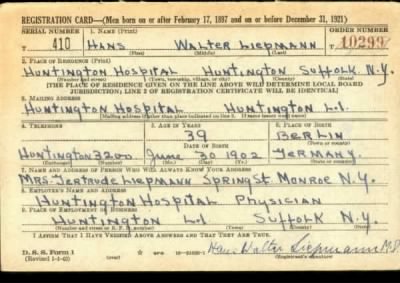 REGISTRATION CARD—(Men born on or after February 17, 1897 and on or before December 31, 1921)
SERIAL NUMBER 1. NAME (Print) ORDER NUMBER
T 410 HANS WALTER LIEPMANN 10299
(First) (Middle) (Last)
2. PLACE OF RESIDENCE (Print)
HUNTINGTON HOSPITAL HUNTINGTON SUFFOLK N.Y.
(Number and street) (Town, township, village, or city) (County) (State)
[THE PLACE OF RESIDENCE GIVEN ON THE LINE ABOVE WILL DETERMINE LOCAL BOARD
JURISDICTION; LINE 2 OF REGISTRATION CERTIFICATE WILL BE IDENTICAL]
3. MAILING ADDRESS
HUNTINGTON HOSPITAL HUNTINGTON L.I.
[Mailing address if other than place indicated on line 2. If same insert word same]
4. TELEPHONE 5. AGE IN YEARS 6. PLACE OF BIRTH
39 BERLIN
DATE OF BIRTH
HUNTINGTON 3200 JUNE 30 1902 GERMANY
(Exchange) (Number) (Mo.) (Day) (Yr.) (State or country)
7. NAME AND ADDRESS OF PERSON WHO WILL ALWAYS KNOW YOUR ADDRESS
MRS. GERTRUDE LIEPMANN SPRING ST. MONROE N.Y.
8. EMPLOYER'S NAME AND ADDRESS
HUNTINGTON HOSPITAL PHYSICIAN
9. PLACE OF EMPLOYMENT OR BUSINESS
HUNTINGTON L.I. SUFFOLK N.Y.
(Number and street or R. F. D. number) (Town) (County) (State)
I AFFIRM THAT I HAVE VERIFIED ABOVE ANSWERS AND THAT THEY ARE TRUE.
D. S. S. Form 1
(Revised 1-1-42) (over) Hans Walter Liepmann M.D.
(Registrant's signature)